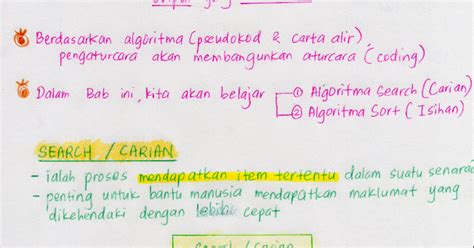 Berdasarkan algoritma (pseudokod & carta alir),
pengaturcara akan membangunkan aturcara (coding)
Dalam Bab ini, kita akan belajar ① Algoritma Search (Carian)
② Algoritma Sort (Isihan)
SEARCH / CARIAN
- ialah proses mendapatkan item tertentu dalam suatu senarai
- penting untuk bantu manusia mendapatkan maklumat yang
dikehendaki dengan lebih cepat